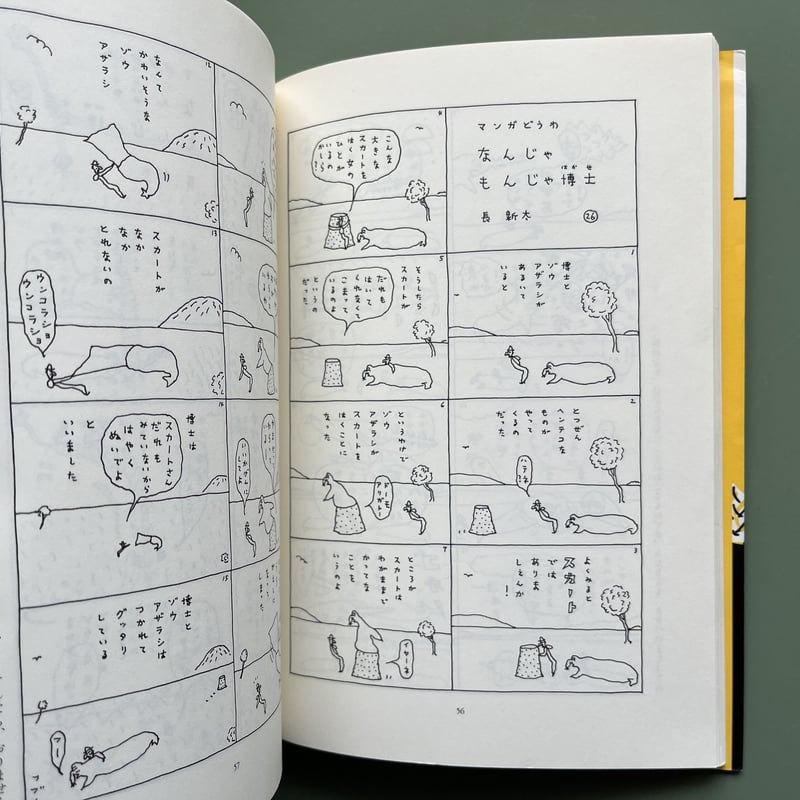 マンガどうわ
なんじゃ
もんじゃ博士
はかせ
長 新太
26
1
博士と
ゾウ
アザラシが
あるいて
いると
2
とつぜん
ヘンテコな
ものが
やって
くるの
だった
ハテネ?
3
よくみると
スカート
では
ありま
しぇんか
!
こんな
大きな
スカートを
はく女の
ひとが
いるの
かしら?
5
そうしたら
スカートが
だれも
はいて
くれなくて
こまって
いるのよ
というの
だった
6
というわけで
ゾウ
アザラシが
スカートを
はくことに
なった
ドーモ
アリガトー
7
ところが
スカートは
わがままで
かってな
ことを
いうのよ
イヤーネ
56
12
なんて
かわいそうな
ゾウ
アザラシ
13
スカートが
なか
なか
とれないの
ウンコラショ
ウンコラショ
博士は
スカートさん
だれも
みていないから
はやく
ぬいでよ
と
いいました
15
博士と
ゾウ
アザラシは
つかれて
グッタリ
している
フー
57